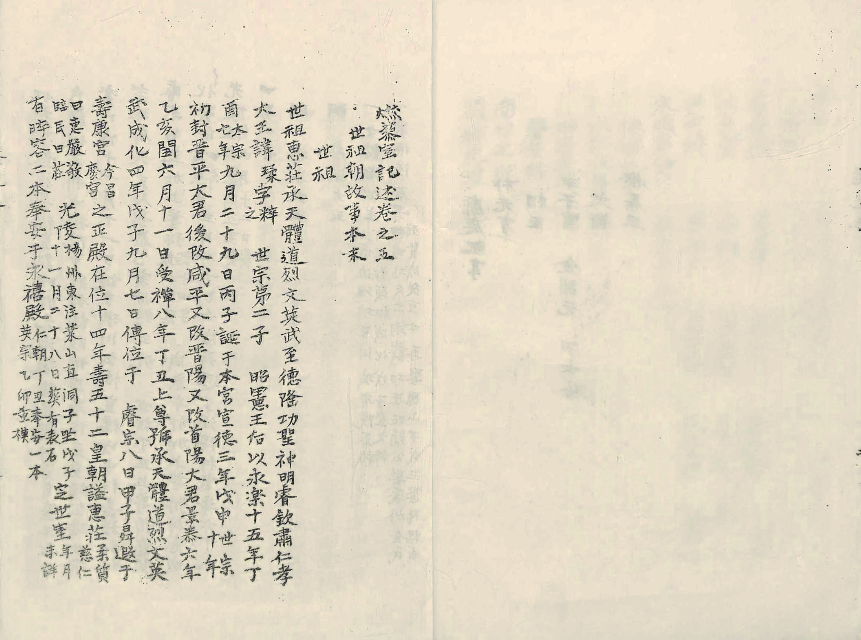 燃藜室記述卷之五
世祖朝故事本末
世祖
世祖惠莊承天體道烈文英武至德隆功聖神明睿欽肅仁孝
大王諱瑈字粹之 世宗第二子 昭憲王后以永樂十五年丁
酉太宗十七年九月二十九日丙子誕于本宮宣德三年戊申世宗十年
初封晋平大君後改咸平又改晋陽又改首陽大君景泰六年
乙亥閏六月十一日受禪八年丁丑上尊號承天體道烈文英
武成化四年戊子九月七日傳位于 睿宗八日甲子昇遐于
壽康宮今昌慶宮之正殿在位十四年壽五十二皇朝謚惠莊柔質慈仁
曰惠嚴敬臨民曰莊 光陵楊州東注葉山直洞子坐戊子十一月二十八日葬有表石 定世室年月未詳
有晬容二本奉安于永禧殿仁朝丁丑奉安一本英宗乙卯重摸